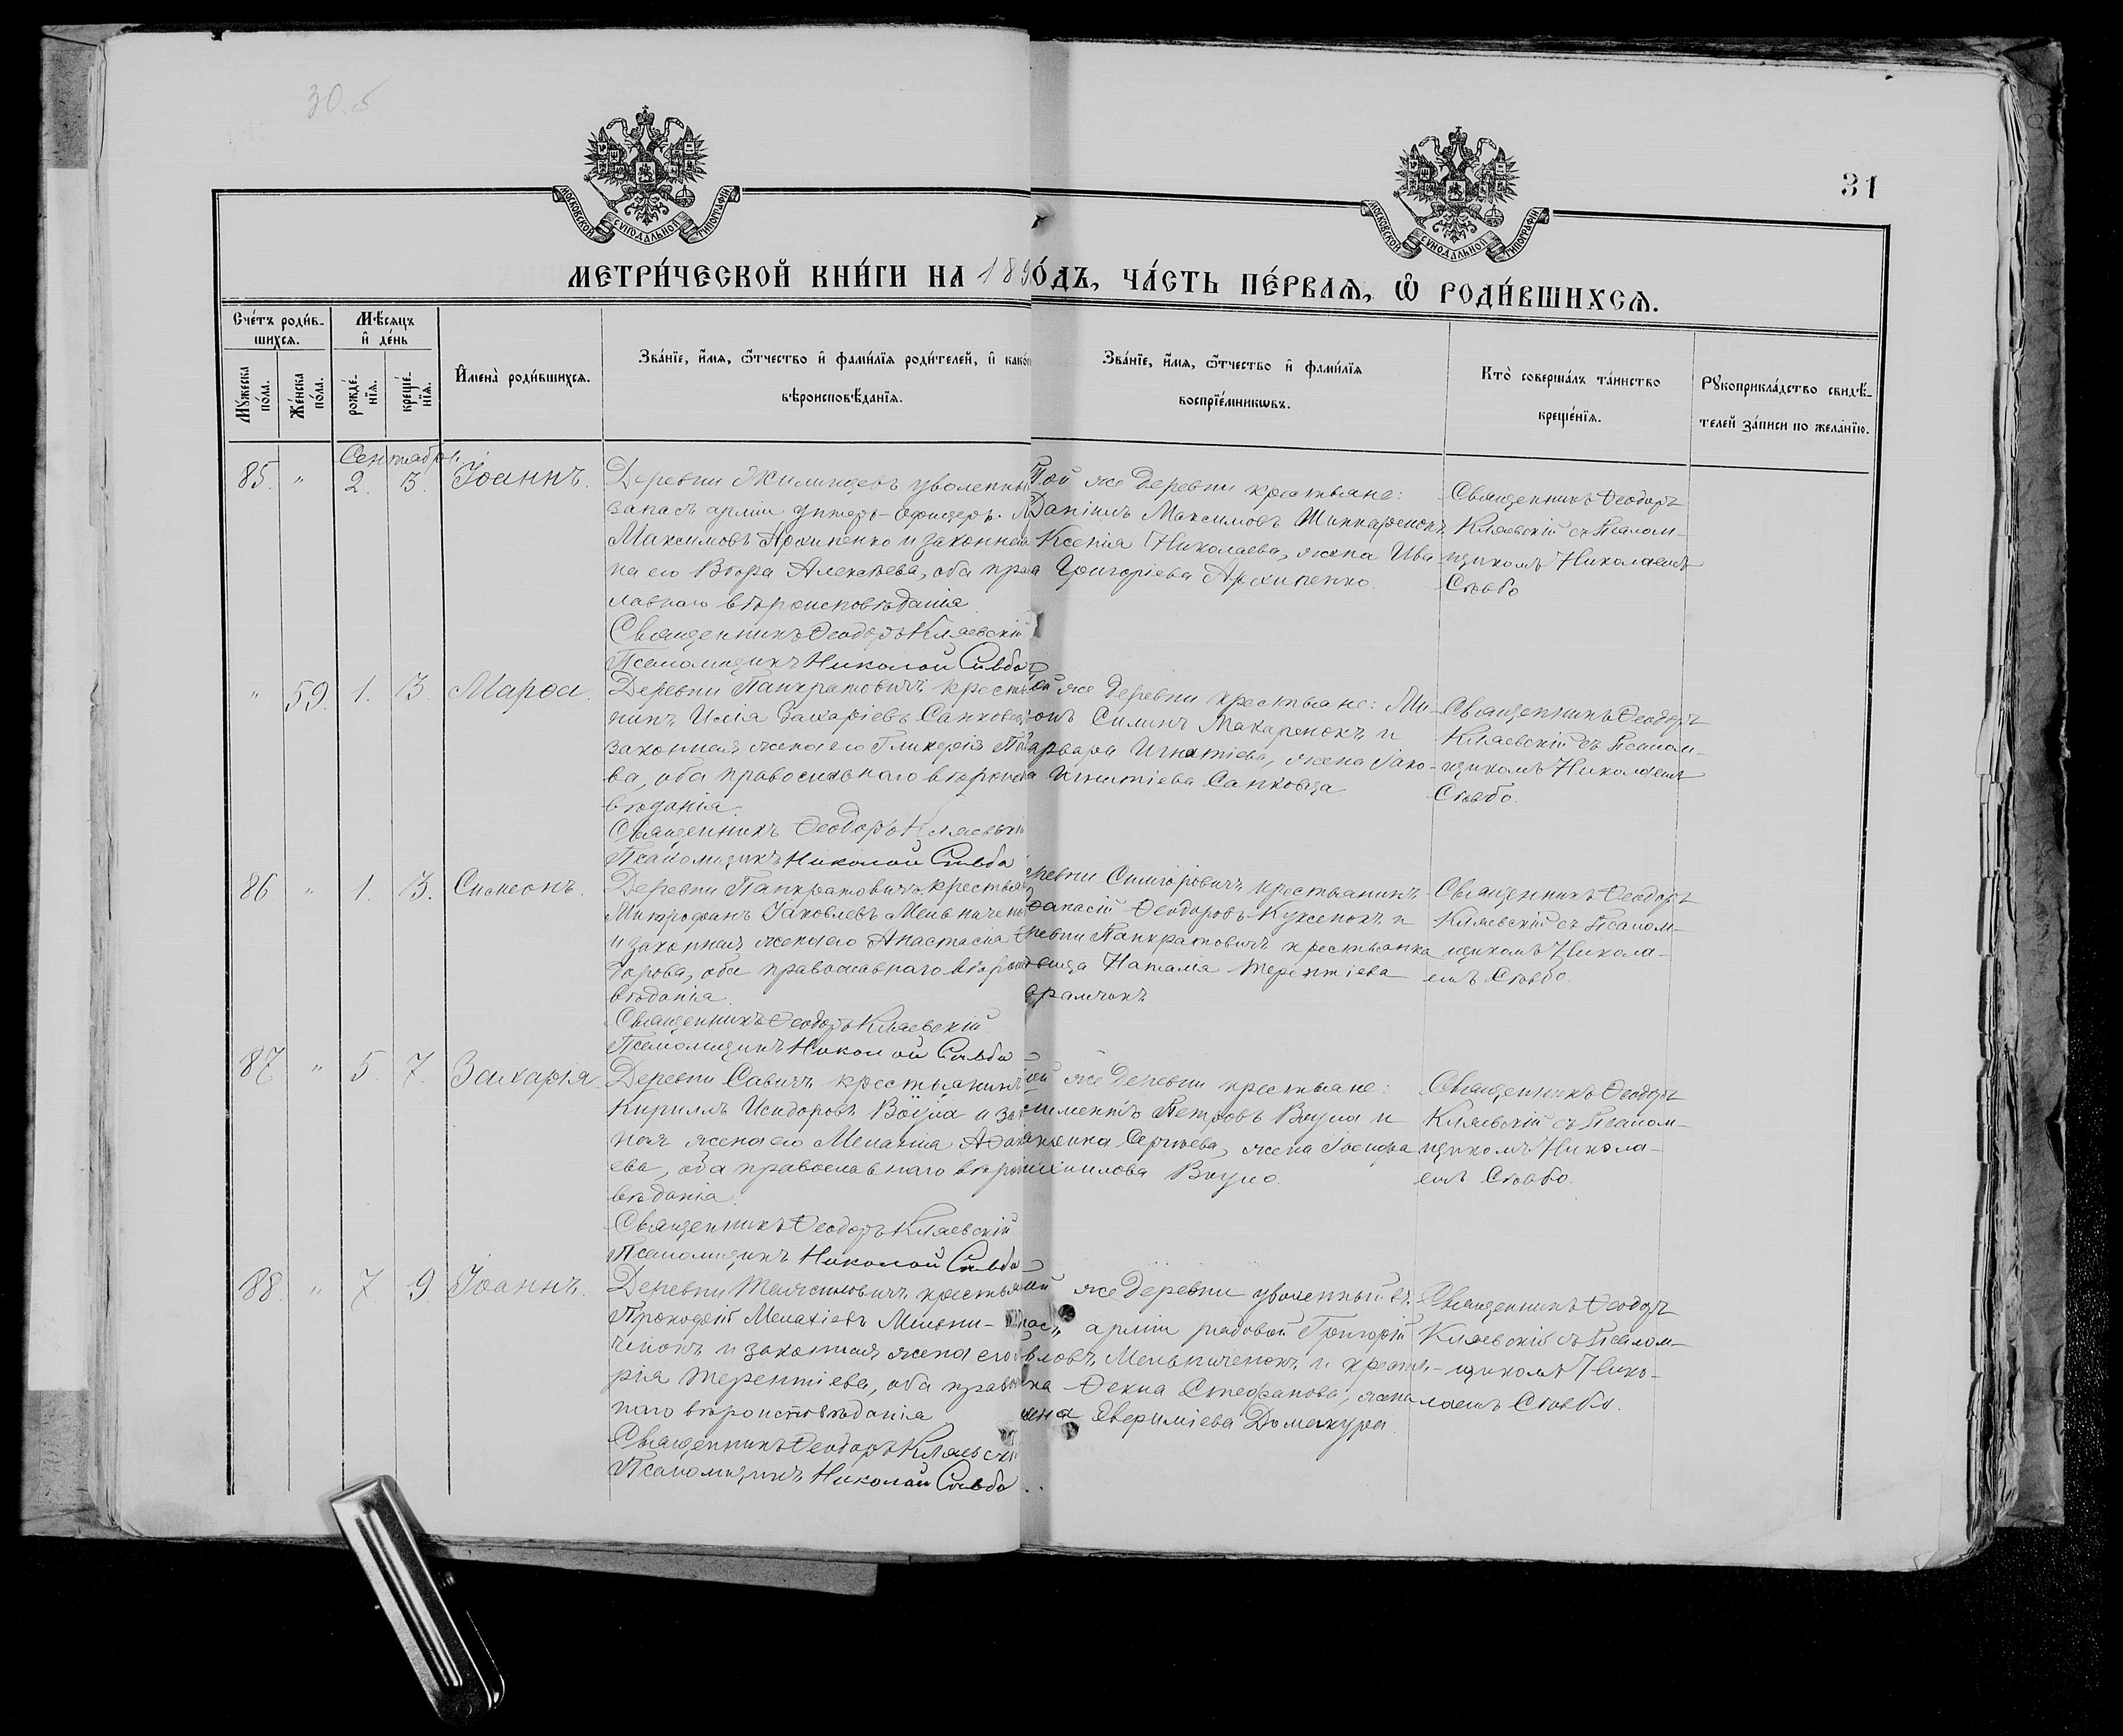 30.об
31
МОСКОВСКОЙ СѴНОДАЛЬНОЙ ТИПОГРАФІИ
МОСКОВСКОЙ СѴНОДАЛЬНОЙ ТИПОГРАФІИ
МЕТРИ́ЧЕСКОЙ КНИ́ГИ НА 189
О́ДЪ, ЧА́СТЬ ПЕ́РВАѦ, Ѡ҆ РОДИ́ВШИХСѦ.
Сче́тъ роди́в-
шихсѧ.
Мꙋ́жеска по́ла.
Же́нска по́ла.
Мѣ́сѧцъ и҆ де́нь
рожде́-нїѧ.
креще́-нїѧ.
И҆мена̀ роди́вшихсѧ.
Зва́нїе, и҆́мѧ, ѻ҆́тчество и҆ фами́лїѧ роди́телей, и҆ како́
вѣроисповѣ́данїѧ.
Зва́нїе, и҆́мѧ, ѻ҆́тчество и҆ фами́лїѧ
воспрїе́мникѡвъ.
Кто̀ соверша́лъ та́инство
креще́нїѧ.
Рꙋкоприкла́дство свидѣ́-
телей за́писи по жела́нїю.
Сентябрь
85. " 2. 3. Іоаннъ.
Деревни Жилиндевъ уволенны
запасъ арміи унтеръ-Офицеръ
Максимовъ Архипенко и законная
на его Вѣра Алексѣева, оба прав
лавнаго вѣроисповѣданія.
Священникъ Ѳеодоръ Кляевскій
Псаломщикъ Николай Сѣвбо
Той же деревни крестьяне:
Даніилъ Максимовъ Шинкаренокъ
Ксенія Николаева, жена Ива
а Григоріева Архипенко.
Священникъ Ѳеодоръ
Кляевскій съ Псалом-
щикомъ Николаемъ
Сѣвбо
" 59. 1. 3. Марѳа.
Деревни Панкратовичъ крестья
нинъ Илія Захаріевъ Санковец
законная жена его Гликерія
ва, оба православнаго вѣроис
вѣданія.
Священникъ Ѳеодоръ Кляевскій
Псаломщикъ Николай Сѣвбо
ой же деревни крестьяне: Ми-
онъ Силинъ Макаренокъ и
арвара Игнатіева, жена Іако-
а Игнатіева Санковца
Священникъ Ѳеодоръ
Кляевскій съ Псалом-
щикомъ Николаемъ
Сѣвбо.
86 " 1. 3. Симеонъ.
Деревни Панкратовичъ крестья
Митрофанъ Іаковлевъ Мельничен
и законная жена его Анастасія Ѳ
дорова, оба православнаго вѣрои
вѣданія.
Священникъ Ѳеодоръ Кляевскій
Псаломщикъ Николай Сѣвбо
ревни Снигоровичъ крестьянинъ
ѳанасій Ѳеодоровъ Куксенокъ и
ревни Панкратовичъ крестьянка
вица Наталія Терентіева
Священникъ Ѳеодоръ
Кляевскій съ Псалом-
щикомъ Никола-
емъ Сѣвбо.
87 " 5. 7. Захарія.
Деревни Савичъ крестьянинъ
Кириллъ Исидоровъ Воўла и за
ная жена его Меланія Аѳан
ева, оба православнаго вѣрои
вѣданія
Священникъ Ѳеодоръ Кляевскій
Псаломщикъ Николай Сѣвбо
ой же деревни крестьяне:
лиментъ Петровъ Ваула и
Сергѣева, жена Іосифа
Священникъ Ѳеодоръ
Кляевскій съ Псалом-
щикомъ Никола-
емъ Сѣвбо.
88. " 7. 9. Іоаннъ.
Прокофій Мелахіевъ Мельни-
ченокъ и законная жена его
рія Терентіева, оба правос
наго вѣроисповѣданія
Священникъ Ѳеодоръ Кляевскі
Псаломщикъ Николай Сѣвбо
ой же деревни уволенный въ
пасъ арміи рядовой Григорій
вловъ Мельниченокъ и крестья-
нка Ѳекла Стефанова, жена
Священникъ Ѳеодоръ
Кляевскій съ Псалом-
щикомъ Нико-
лаемъ Сѣвбо.